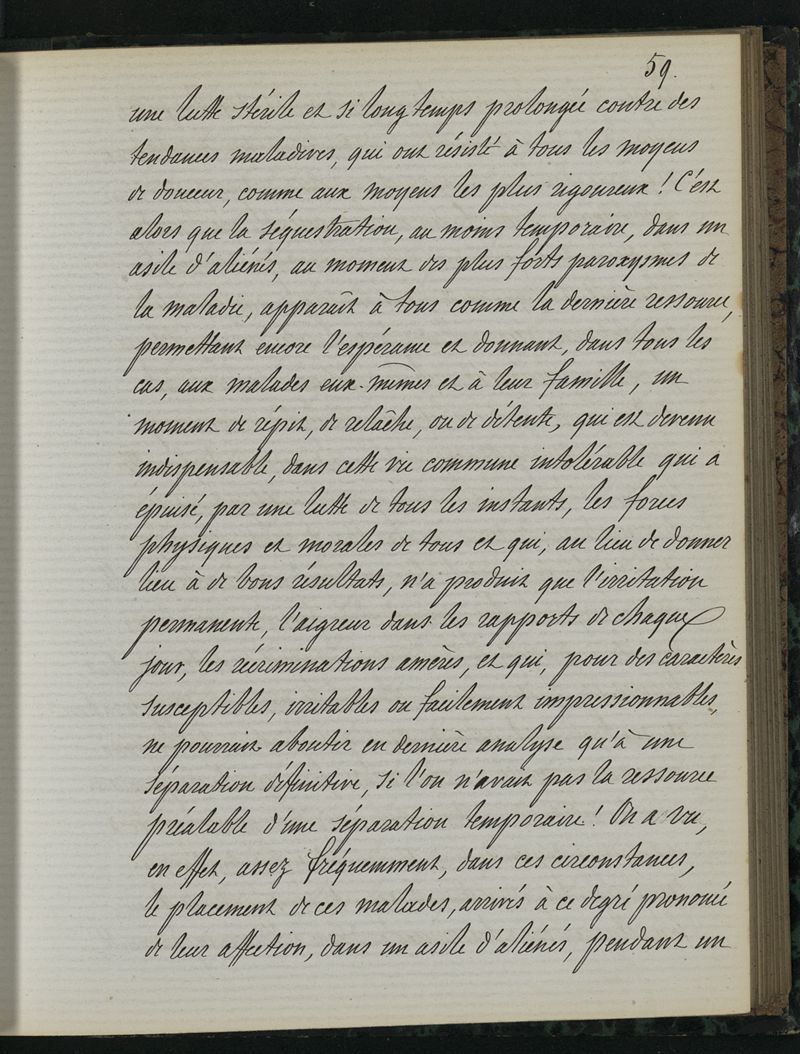 59.
une lutte stérile et si longtemps prolongée contre des
tendances maladives, qui ont résisté à tous les moyens
de douceur, comme aux moyens les plus rigoureux ! C'est
alors que la séquestration, au moins temporaire, dans un
asile d'aliénés, au moment des plus forts paroxysmes de
la maladie, apparaît à tous comme la dernière ressource,
permettant encore l'espérance et donnant, dans tous les
cas, aux malades eux-mêmes et à leur famille, un
moment de répit, de relâche, ou de détente, qui est devenu
indispensable, dans cette vie commune intolérable qui a
épuisé, par une lutte de tous les instants, les forces
physiques et morales de tous et qui, au lieu de donner
lieu à de bons résultats, n'a produit que l'irritation
permanente, l'aigreur dans les rapports de chaque
jour, les récriminations amères, et qui, pour des caractères
susceptibles, irritables ou facilement impressionnables,
ne pourrait aboutir en dernière analyse qu'à une
séparation définitive, si l'on n'avait pas la ressource
préalable d'une séparation temporaire ! On a vu,
en effet, assez fréquemment, dans ces circonstances,
le placement de ces malades, arrivés à ce degré prononcé
de leur affection, dans un asile d'aliénés, pendant un